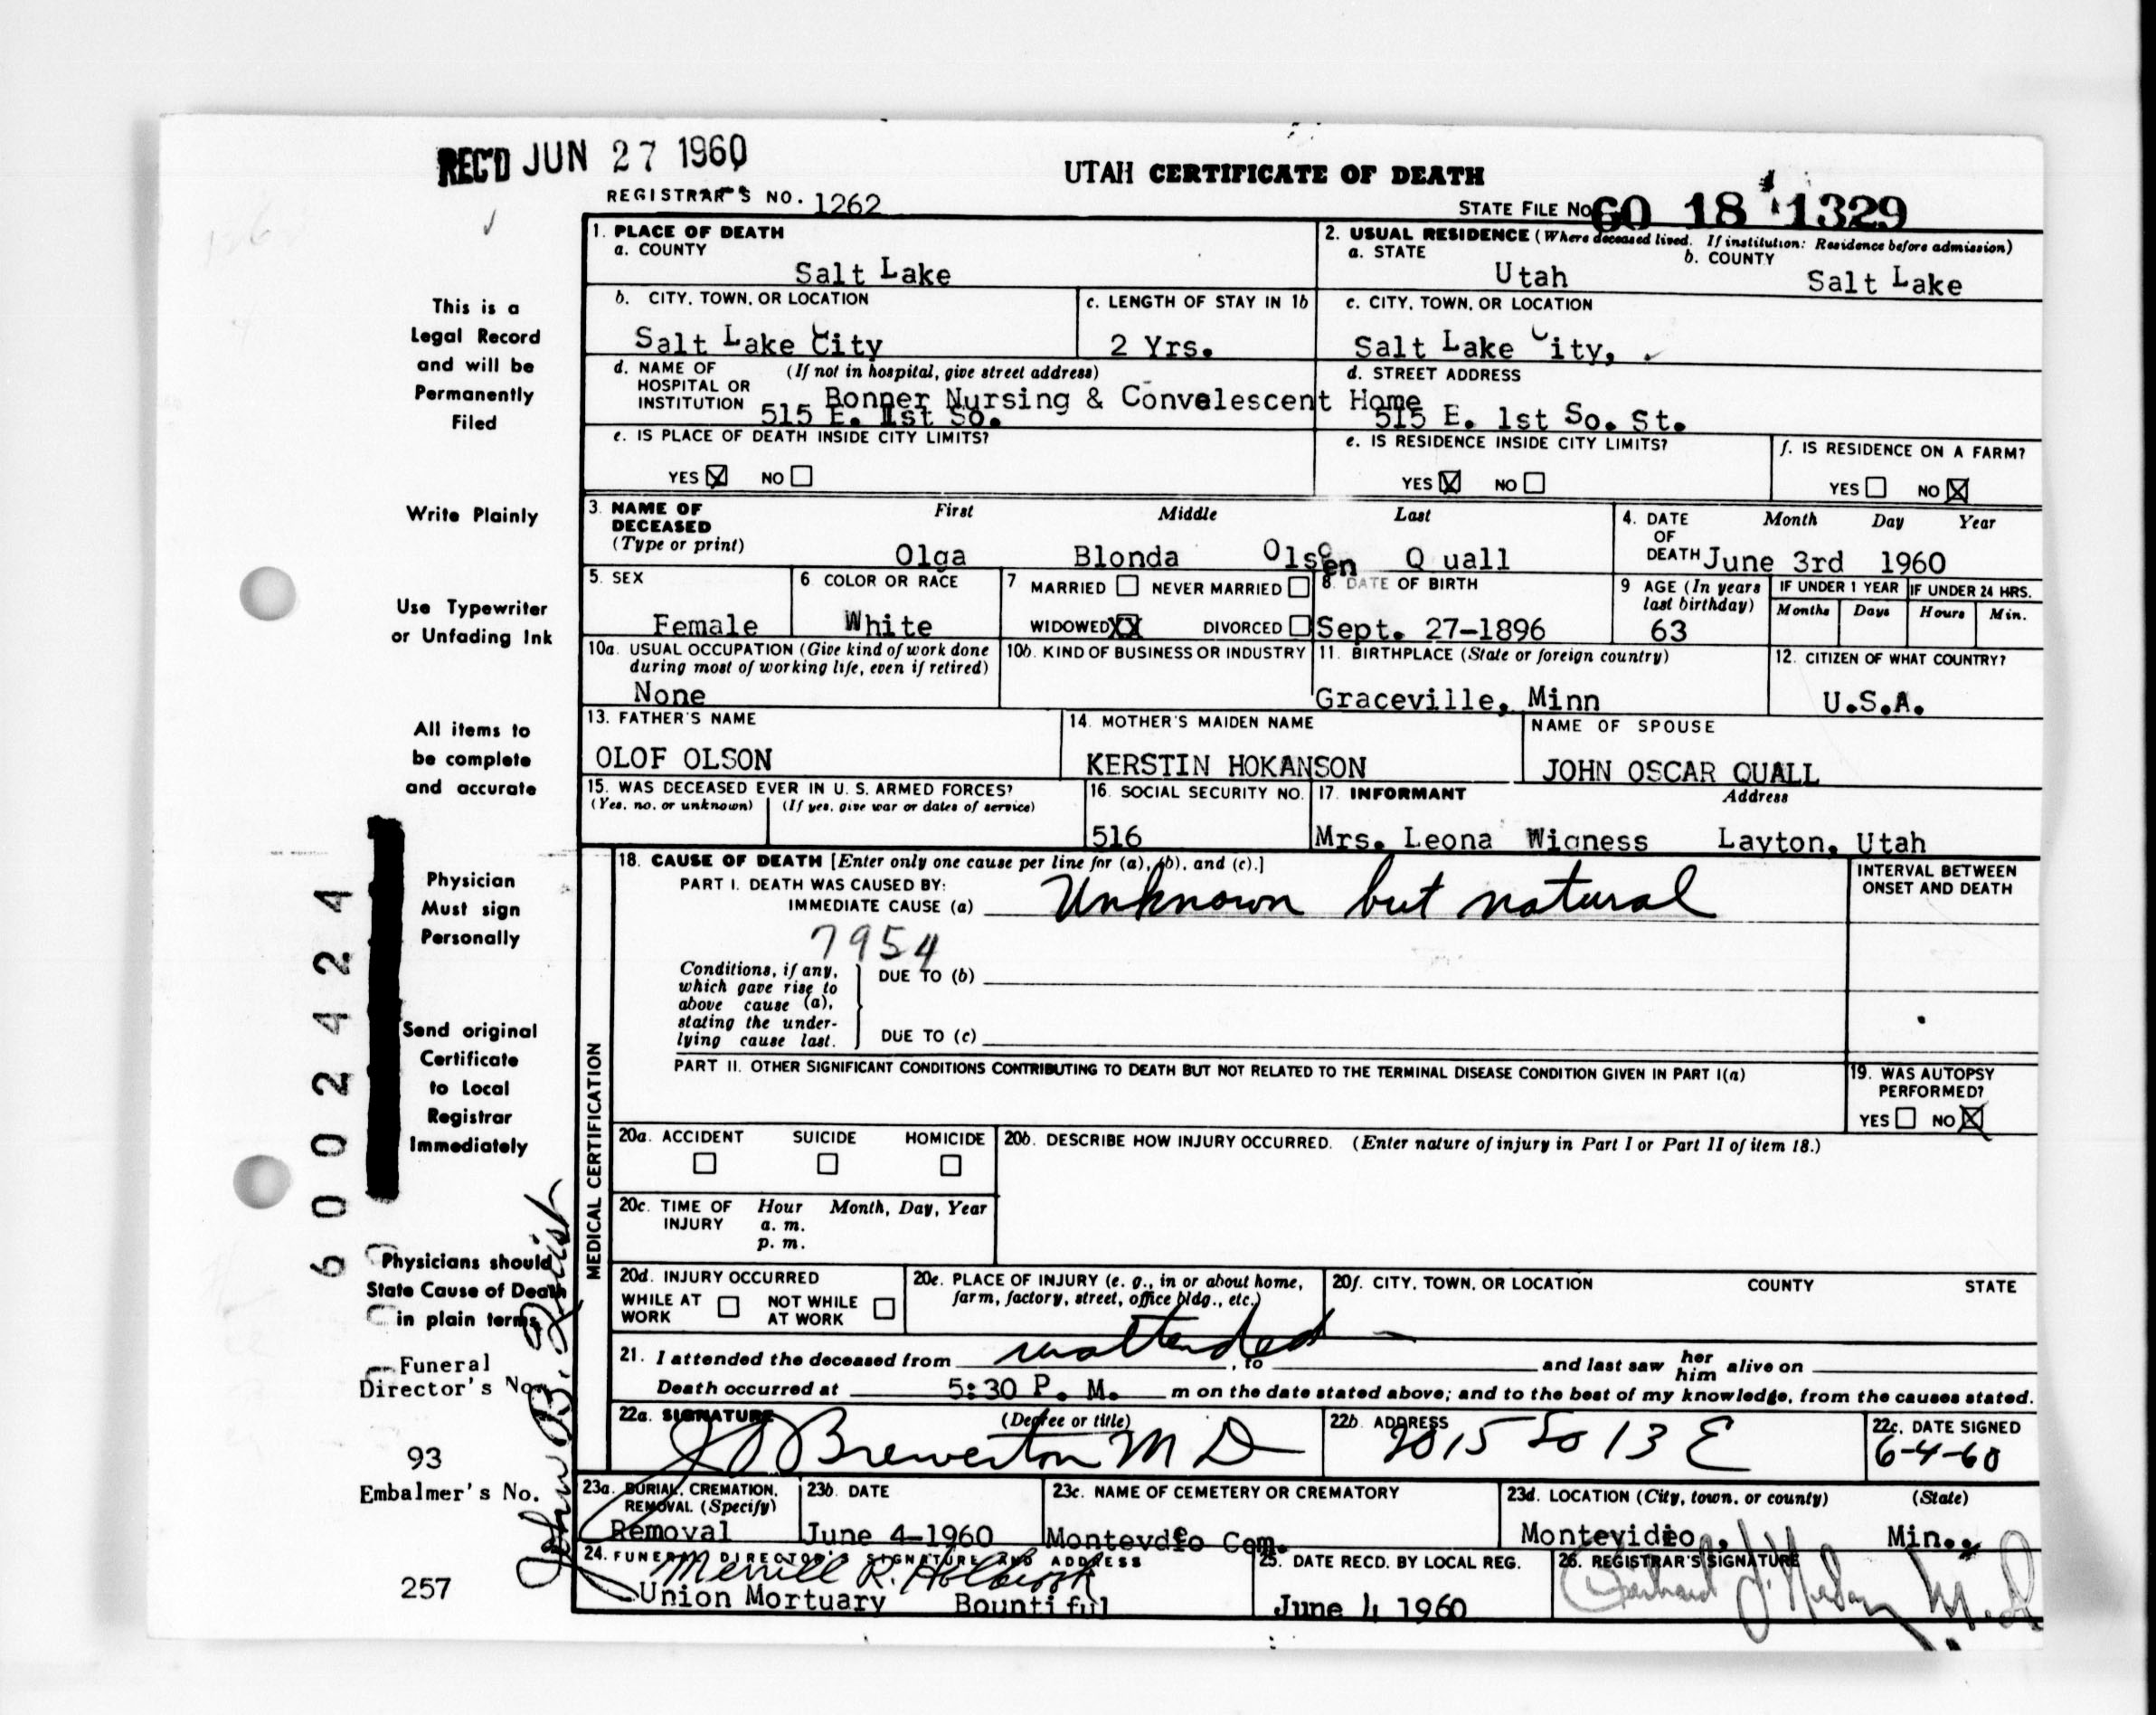 REC'D JUN 27 1960
UTAH CERTIFICATE OF DEATH
REGISTRAR'S NO. 1262
STATE FILE No. 60 18 1329
This is a
Legal Record
and will be
Permanently
Filed
Write Plainly
Use Typewriter
or Unfading Ink
All items to
be complete
and accurate
Physician
Must sign
Personally
Send original
Certificate
to Local
Registrar
Immediately
Physicians should
State Cause of Death
in plain terms
Funeral
Director's No.
93
Embalmer's No.
257
6002424
John B.
1. PLACE OF DEATH
a. COUNTY
Salt Lake
2. USUAL RESIDENCE (Where deceased lived. If institution: Residence before admission)
a. STATE b. COUNTY
Utah Salt Lake
b. CITY, TOWN, OR LOCATION c. LENGTH OF STAY IN 1b
Salt Lake City 2 Yrs.
c. CITY, TOWN, OR LOCATION
Salt Lake City,
d. NAME OF (If not in hospital, give street address)
HOSPITAL OR
INSTITUTION Bonner Nursing & Convalescent Home
515 E. 1st So.
d. STREET ADDRESS
515 E. 1st So. St.
e. IS PLACE OF DEATH INSIDE CITY LIMITS?
YES NO
e. IS RESIDENCE INSIDE CITY LIMITS? f. IS RESIDENCE ON A FARM?
YES NO YES NO
3. NAME OF DECEASED (Type or print) First Middle Last
Olga Blonda Olsen Quall
4. DATE OF DEATH Month Day Year
June 3rd 1960
5. SEX 6 COLOR OR RACE 7 MARRIED NEVER MARRIED 8. DATE OF BIRTH 9 AGE (In years last birthday) IF UNDER 1 YEAR IF UNDER 24 HRS.
Months Days Hours Min.
Female White WIDOWED XX DIVORCED Sept. 27-1896 63
10a. USUAL OCCUPATION (Give kind of work done during most of working life, even if retired) 10b. KIND OF BUSINESS OR INDUSTRY 11. BIRTHPLACE (State or foreign country) 12. CITIZEN OF WHAT COUNTRY?
None Graceville, Minn U.S.A.
13. FATHER'S NAME 14. MOTHER'S MAIDEN NAME NAME OF SPOUSE
OLOF OLSON KERSTIN HOKANSON JOHN OSCAR QUALL
15. WAS DECEASED EVER IN U. S. ARMED FORCES? 16. SOCIAL SECURITY NO. 17. INFORMANT Address
(Yes, no, or unknown) (If yes, give war or dates of service)
516 Mrs. Leona Wigness Layton, Utah
MEDICAL CERTIFICATION
18. CAUSE OF DEATH [Enter only one cause per line for (a), (b), and (c).]
INTERVAL BETWEEN
ONSET AND DEATH
PART I. DEATH WAS CAUSED BY:
IMMEDIATE CAUSE (a) Unknown but natural
7954
Conditions, if any,
which gave rise to
above cause (a),
stating the under-
lying cause last.
DUE TO (b)
DUE TO (c)
PART II. OTHER SIGNIFICANT CONDITIONS CONTRIBUTING TO DEATH BUT NOT RELATED TO THE TERMINAL DISEASE CONDITION GIVEN IN PART I(a)
19. WAS AUTOPSY
PERFORMED?
YES NO
20a. ACCIDENT SUICIDE HOMICIDE
20b. DESCRIBE HOW INJURY OCCURRED. (Enter nature of injury in Part I or Part II of item 18.)
20c. TIME OF INJURY Hour Month, Day, Year
a. m.
p. m.
20d. INJURY OCCURRED
WHILE AT WORK NOT WHILE AT WORK
20e. PLACE OF INJURY (e. g., in or about home, farm, factory, street, office bldg., etc.)
20f. CITY, TOWN, OR LOCATION COUNTY STATE
21. I attended the deceased from , to and last saw her him alive on
Death occurred at 5:30 P. M. m on the date stated above; and to the best of my knowledge, from the causes stated.
22a. SIGNATURE (Degree or title) 22b. ADDRESS 22c. DATE SIGNED
Brewerton M D 2015 So 13 E 6-4-60
23a. BURIAL, CREMATION, REMOVAL (Specify) 23b. DATE 23c. NAME OF CEMETERY OR CREMATORY 23d. LOCATION (City, town, or county) (State)
Removal June 4-1960 Montevdeo Cem. Montevideo, Min.
24. FUNERAL DIRECTOR'S SIGNATURE AND ADDRESS 25. DATE RECD. BY LOCAL REG. 26. REGISTRAR'S SIGNATURE
Merrill R. Holbrook
Union Mortuary Bountiful June 4 1960